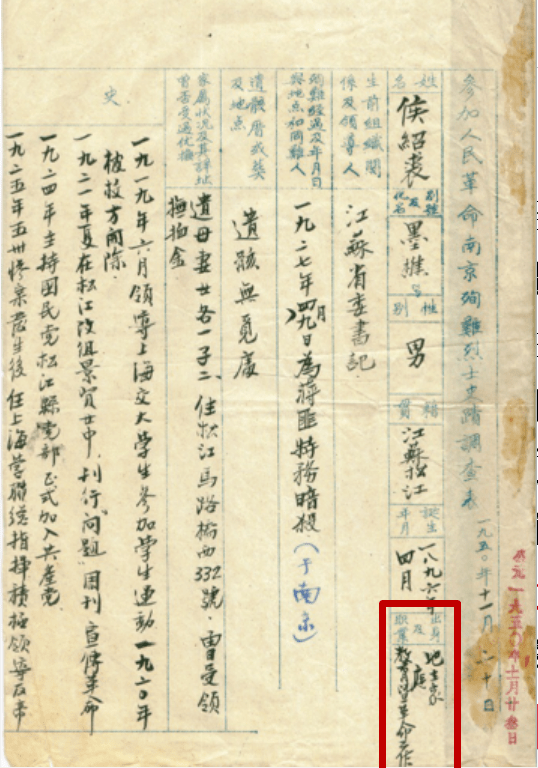 參加人民革命南京殉難烈士史蹟調查表
一九五〇年十一月二十日
公元一九五〇年十二月廿叁日
姓名
侯紹裘
別號及化名
墨樵
性別
男
籍貫
江蘇松江
誕生年月
一八九六年四月
出身及職業
地主家庭
教育與革命工作
生前組織關係及領導人
江蘇省委書記
殉難經過及年月日與地点和同難人
一九二七年四月九日為蔣匪特務暗殺(于南京)
遺骸厝或葬及地点
遺骸無覓處
家屬狀況及其詳址曾否受過優撫
遺母妻女各一子二、住松江馬路橋西332號、曾受領
撫恤金
史
一九一九年六月領導上海交大學生參加學生運動一九二〇年
被校方開除.
一九二一年夏在松江改組景賢女中、刊行"問題"周刊宣傳革命
一九二四年主持國民党松江縣党部正式加入共產党.
一九二五年五卅慘案發生後任上海學聯總指揮積極領導反帝